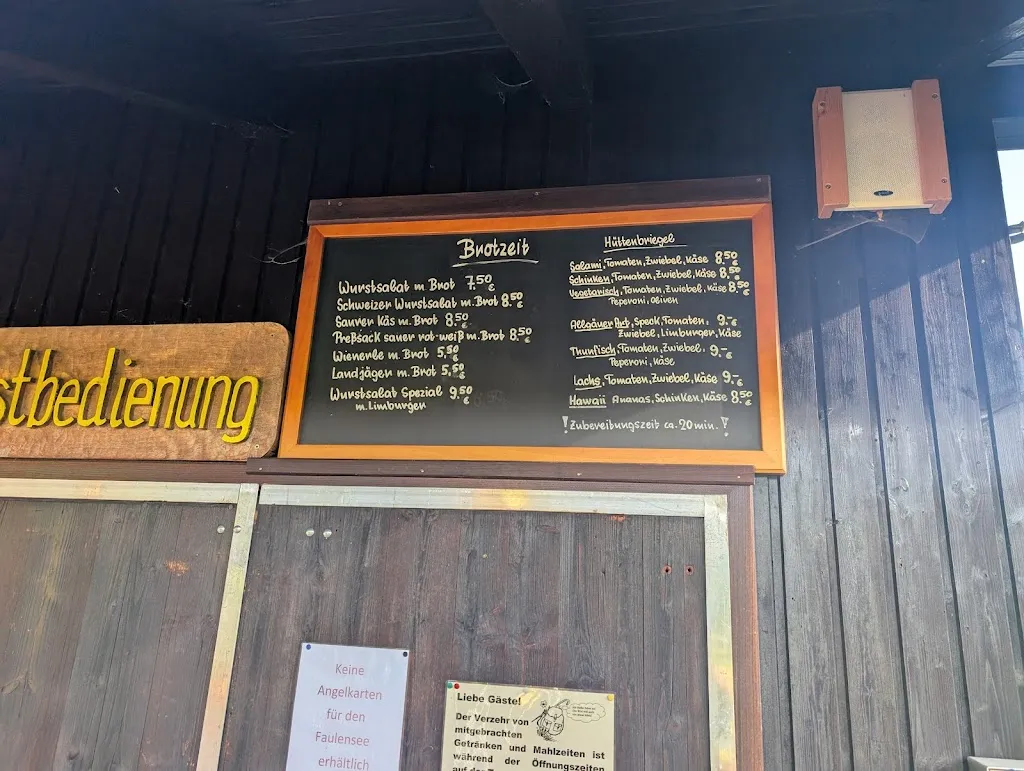 stbedienung
Brotzeit
Wurstsalat m Brot 7.50 €
Schweizer Wurstsalat m. Brot 8.50 €
Saurer Käs m. Brot 8.50 €
Preßsack sauer rot-weiß m. Brot 8.50 €
Wienerle m. Brot 5,50 €
Landjäger m. Brot 5,50 €
Wurstsalat Spezial 9.50 €
m. Limburger
Hüttenbriegel
Salami, Tomaten, Zwiebel, Käse 8.50 €
Schinken, Tomaten, Zwiebel, Käse 8.50 €
Vegetarisch, Tomaten, Zwiebel, Käse 8.50 €
Peperoni, Oliven
Allgäuer Art, Speck, Tomaten, 9.- €
Zwiebel, Limburger, Käse
Thunfisch, Tomaten, Zwiebel, 9.- €
Peperoni, Käse
Lachs, Tomaten, Zwiebel, Käse 9.- €
Hawaii Ananas, Schinken, Käse 8.50 €
! Zubereitungszeit ca. 20 min. !
Keine
Angelkarten
für den
Faulensee
erhältlich
Liebe Gäste!
Der Verzehr von
mitgebrachten
Getränken und Mahlzeiten ist
während der Öffnungszeiten